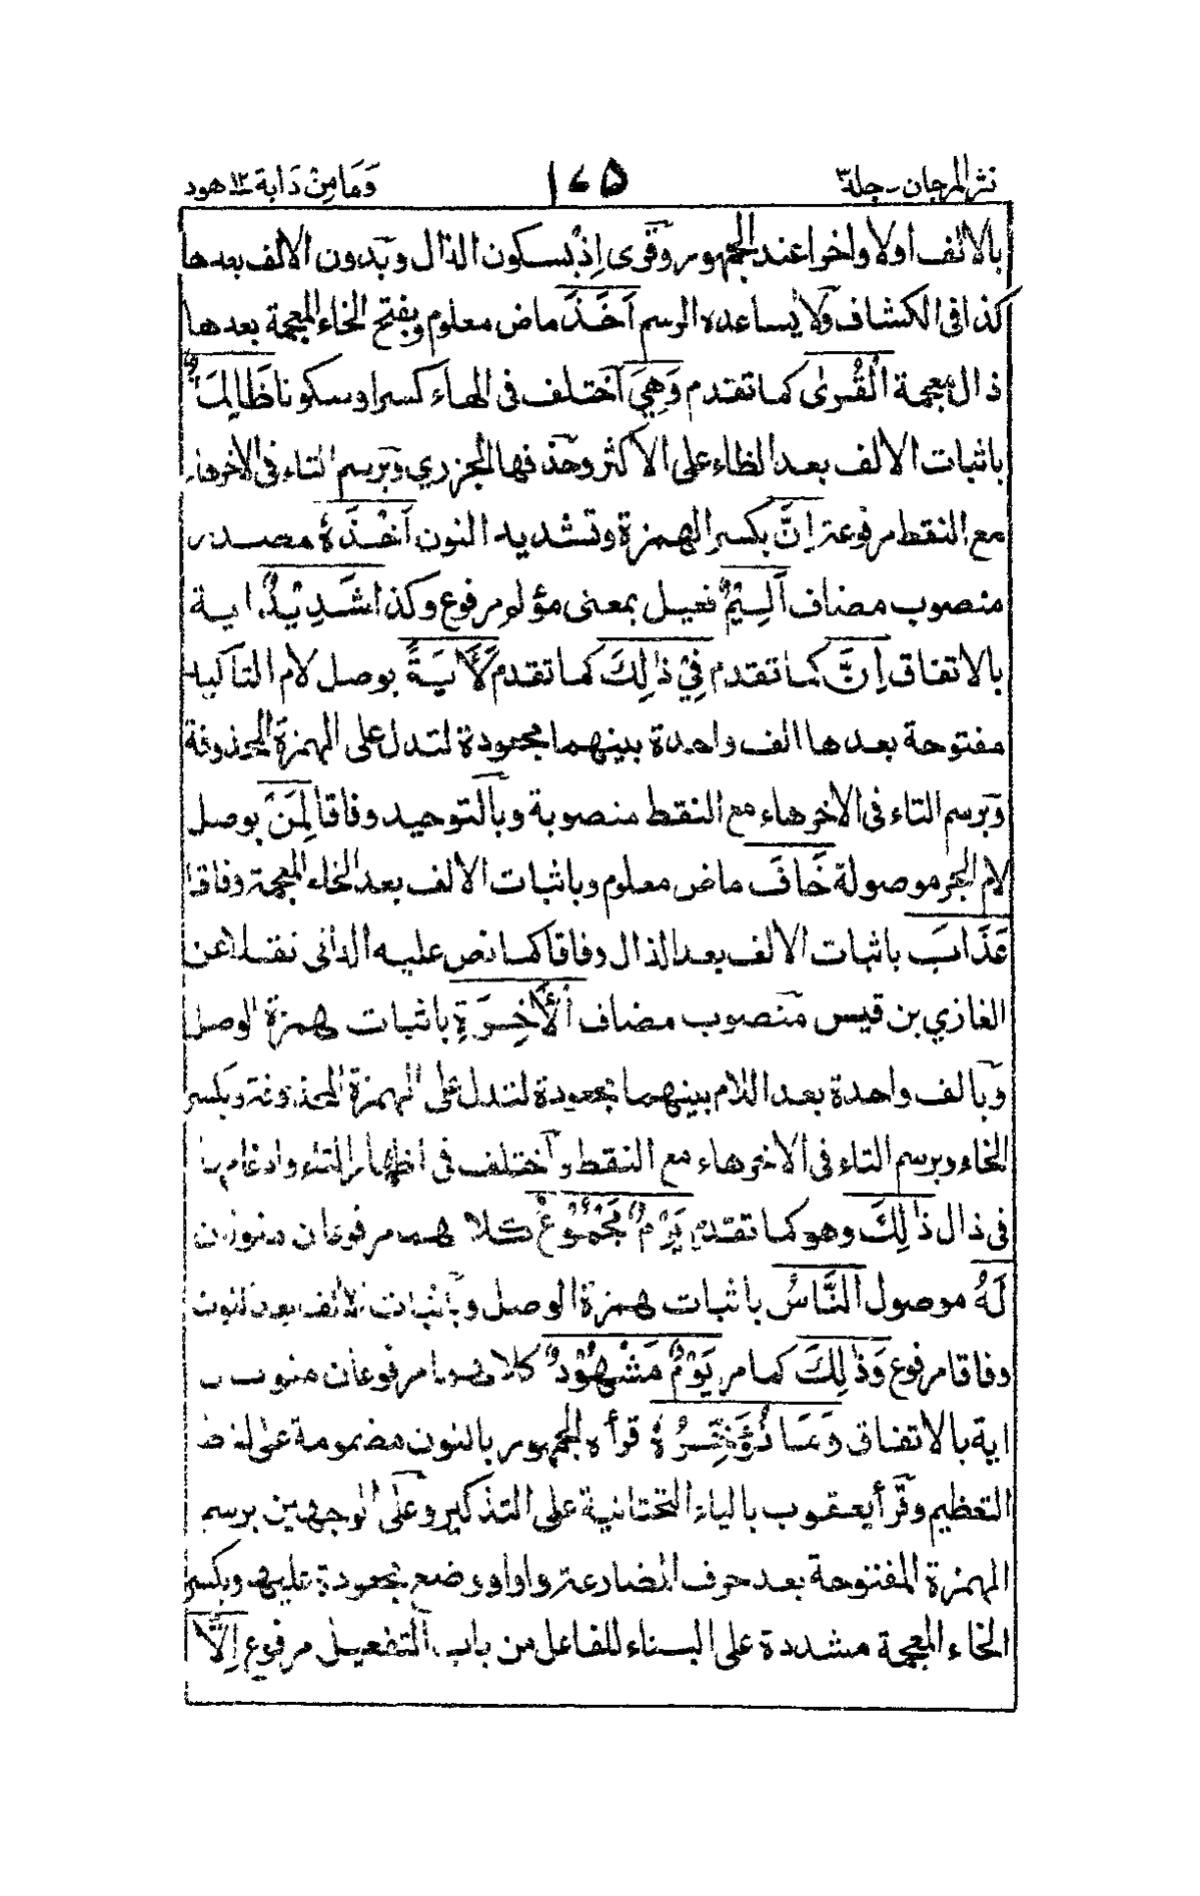 نثر المرجان ـ جلد ٣
١٧٥
وَمَا مِنْ دَابة ١٢ هود
بالالف اولا واخرا عند الجمهور وقرى اِذْ بسكون الذال وبدون الالف بعدها
كذا فى الكشاف ولا يساعده الرسم اَخَذَ ماض معلوم وبفتح الخاء المعجمة بعدها
ذال معجمة الْقُرىٰ كما تقدم وَهِيَ اختلف فى الهاء كسرا وسكونا ظَالِمَةٌ
باثبات الالف بعد الظاء على الاكثر وحذفها الجزري وبرسم التاء فى الاخر هاء
مع النقط مرفوعة اِنَّ بكسر الهمزة وتشديد النون اَخْذَهٗ مصدر
منصوب مضاف اَلِيْمٌ فعيل بمعنى مؤلم مرفوع وكذا شَدِيْدٌ اية
بالاتفاق اِنَّ كما تقدم فِيْ ذٰلِكَ كما تقدم لَاٰيَةً بوصل لام التاكيد
مفتوحة بعدها الف واحدة بينهما مجعودة لتدل على الهمزة المحذوفة
وبرسم التاء فى الاخر هاء مع النقط منصوبة وبالتوحيد وفاقا لِمَنْ بوصل
لام الجر موصولة خَافَ ماض معلوم وباثبات الالف بعد الخاء المعجمة وفاقا
عَذَابَ باثبات الالف بعد الذال وفاقا كما نص عليه الدانى نقلا عن
الغازي بن قيس منصوب مضاف الْاٰخِرَةِ باثبات همزة الوصل
وبالف واحدة بعد اللام بينهما مجعودة لتدل على الهمزة المحذوفة وبكسر
الخاء وبرسم التاء فى الاخر هاء مع النقط واختلف فى اظهار التاء وادغامها
فى ذال ذٰلِكَ وهو كما تقدم يَوْمٌ مَّجْمُوْعٌ كلاهما مرفوعان منونان
لَهُ موصول النَّاسُ باثبات همزة الوصل وباثبات الالف بعد النون
وفاقا مرفوع وَذٰلِكَ كما مر يَوْمٌ مَّشْهُوْدٌ كلاهما مرفوعان منونان
اية بالاتفاق وَمَا نُؤَخِّرُهٗ قرأه الجمهور بالنون مضمومة على لفظ
التعظيم وقرأ يعقوب بالياء التحتانية على التذكير وعلى الوجهين برسم
الهمزة المفتوحة بعد حرف المضارعة واوا ووضع مجعودة عليها وبكسر
الخاء المعجمة مشددة على البناء للفاعل من باب التفعيل مرفوع اِلَّا